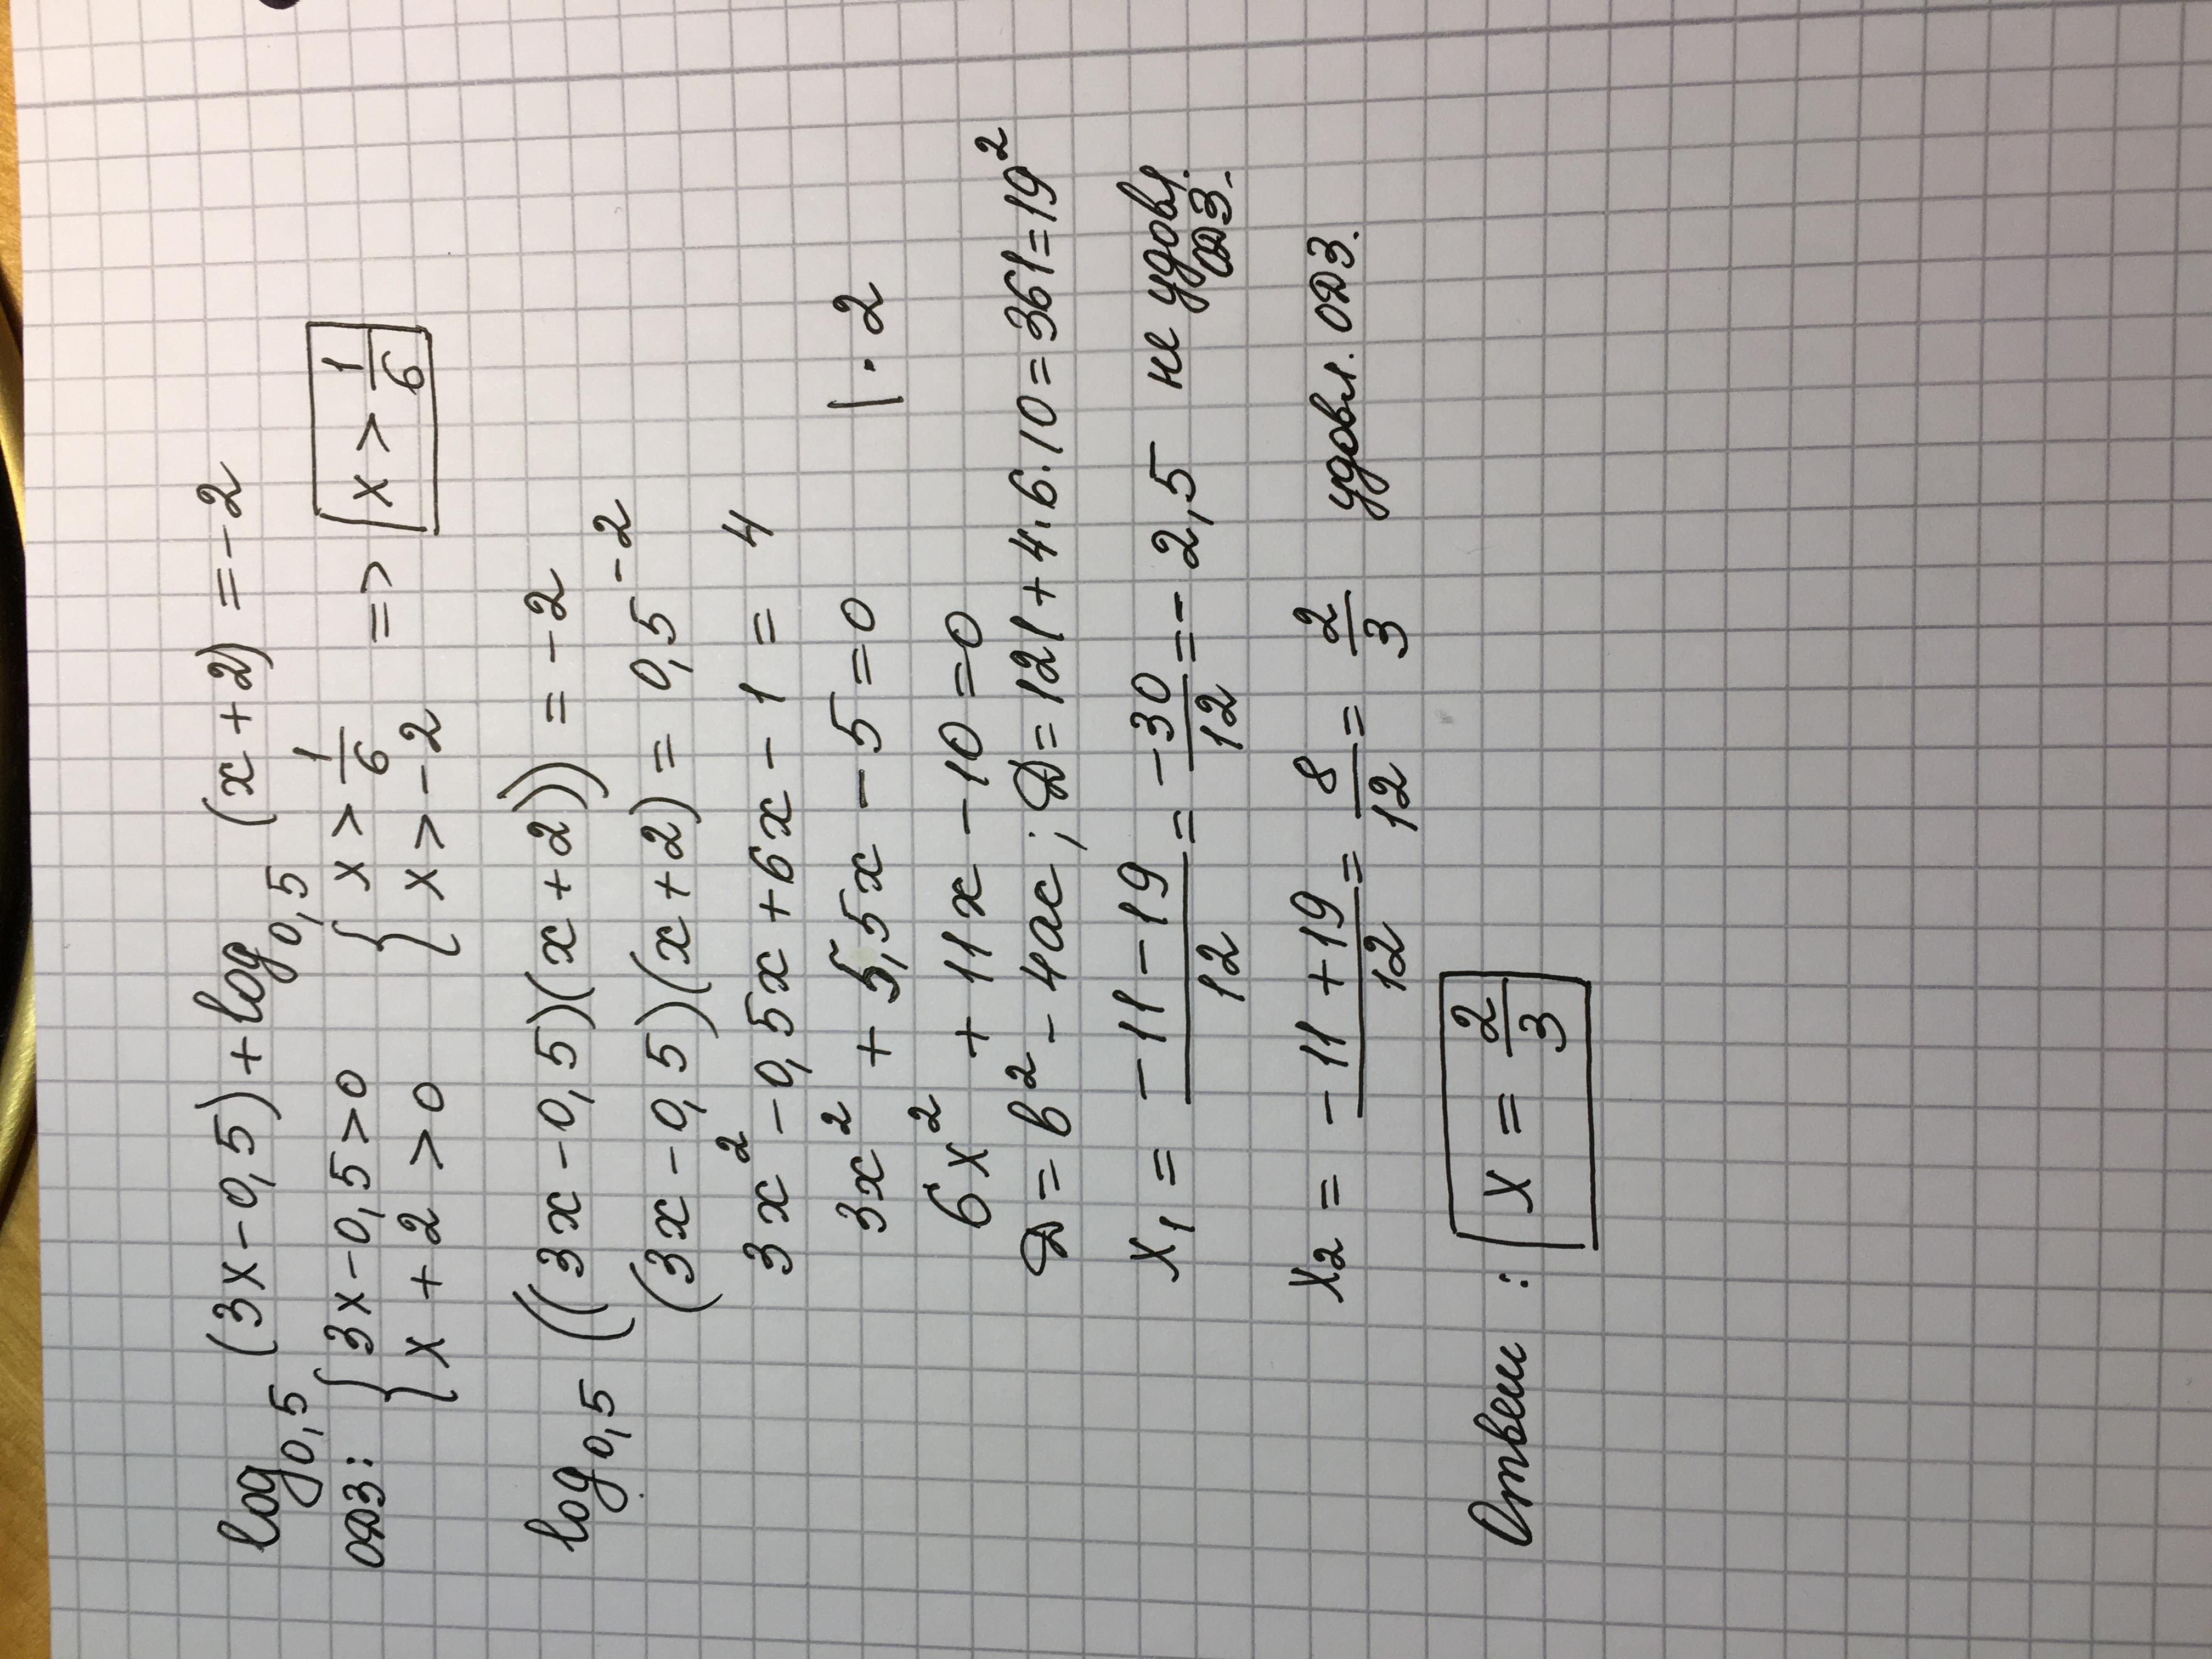 log₀,₅ (3x-0,5)+log₀,₅ (x+2) =-2
ОДЗ: { 3x-0,5>0 { x> 1/6 => x > 1/6
{ x+2 >0 { x>-2
log₀,₅ ((3x-0,5)(x+2)) =-2
(3x-0,5)(x+2) = 0,5⁻²
3x²-0,5x+6x-1 = 4
3x² + 5,5x -5=0 |·2
6x² + 11x -10 =0
D= b² - 4ac; D=121+4·6·10=361=19²
x₁ = (-11-19)/12 = -30/12 =- 2,5 не удовл. ОДЗ.
x₂ = (-11+19)/12 = 8/12 = 2/3 удовл. ОДЗ.
Ответ : x = 2/3